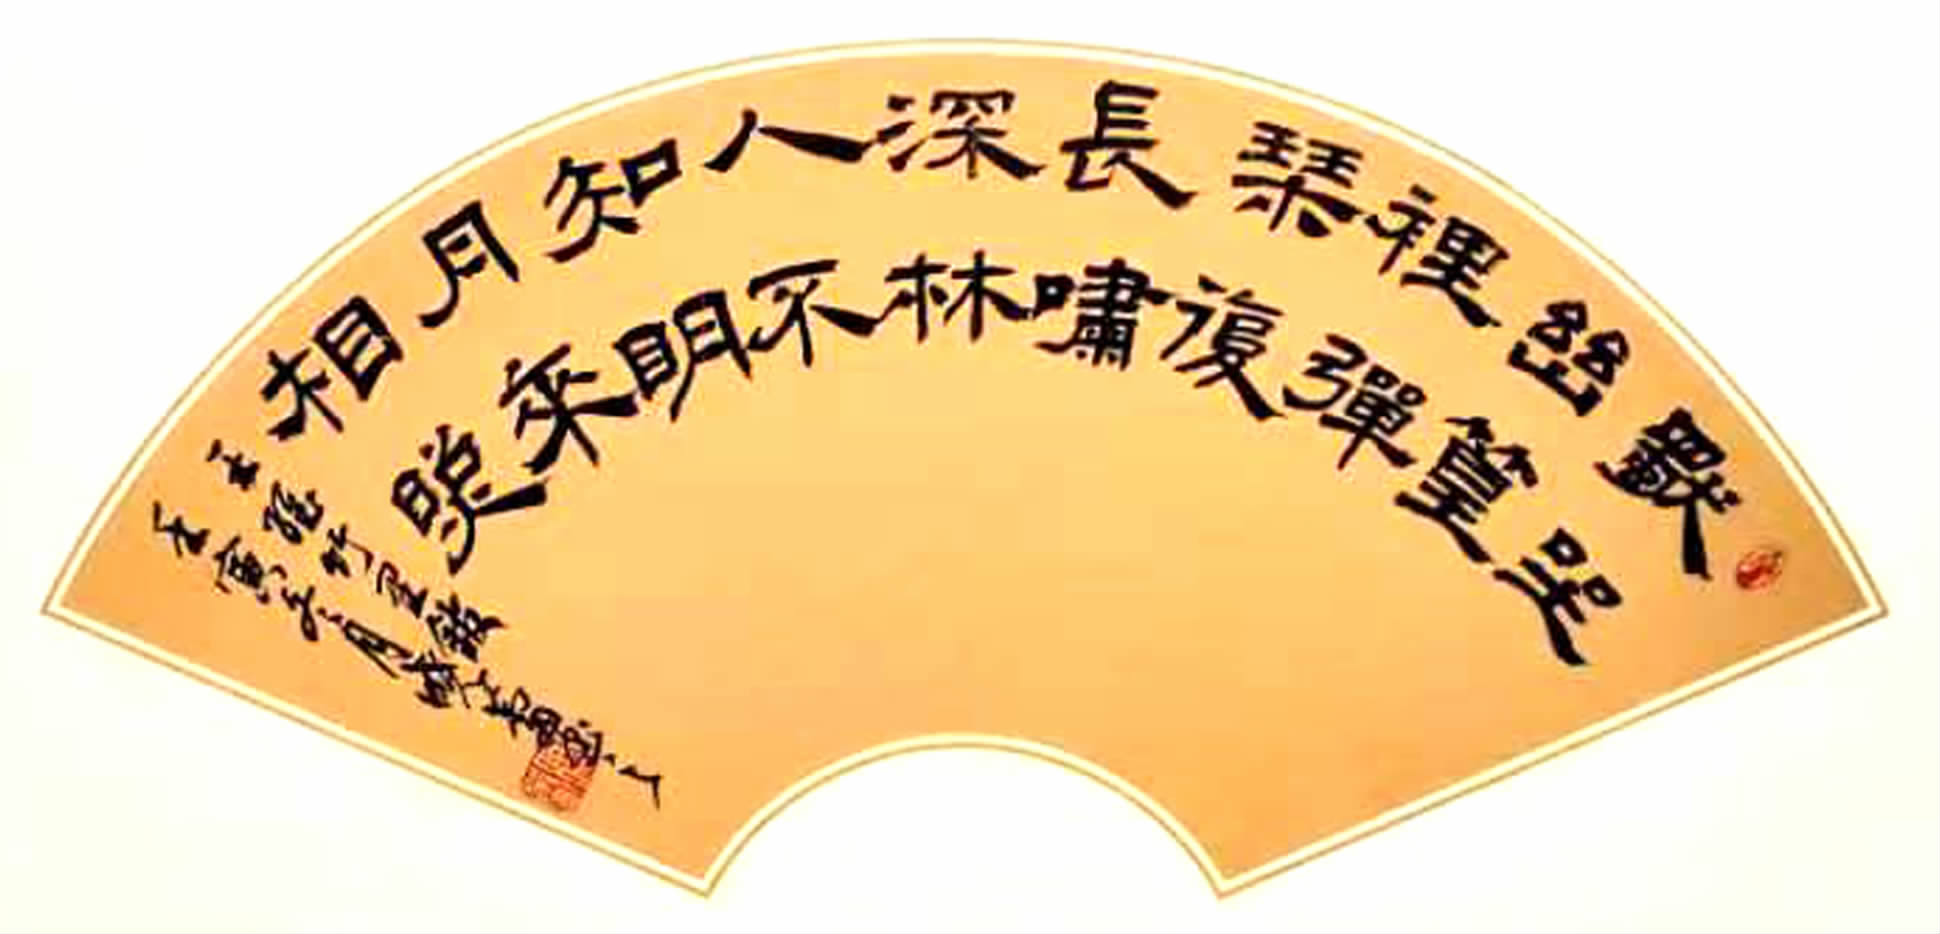 獨坐
幽篁
裡彈
琹復
長嘯
深林
人不
知明
月來
相照
王維竹里館
壬寅 月